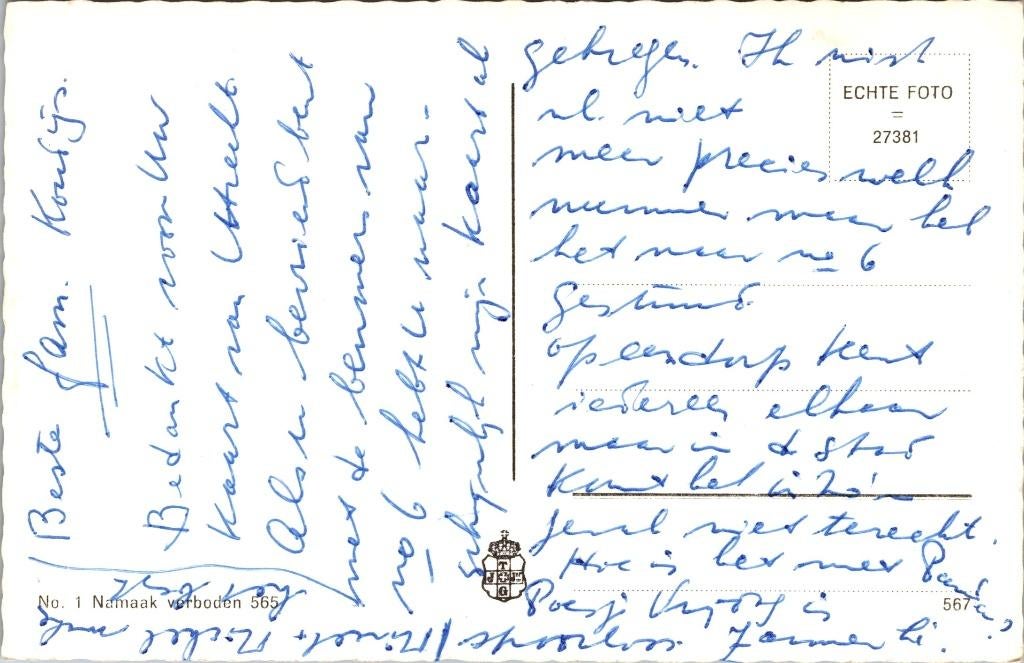 Beste fam. Kondijs.
Bedankt voor Uw
kaart van Utrecht.
Als u bevriend bent
met de bewoners van
no 6 hebt u naar-
mijn kaart al
gekregen. Ik wist
nl. niet
meer precies welk
nummer maar heb
het naar no 6
gestuurd.
op een dorp kent
iedereen elkaar
maar in de stad
komt het in zo'n
geval niet terecht.
Hoe is het met
Poesje is
spoorloos. Jammer hè.
ECHTE FOTO
=
27381
T
J J
G
No. 1 Namaak verboden 565
567